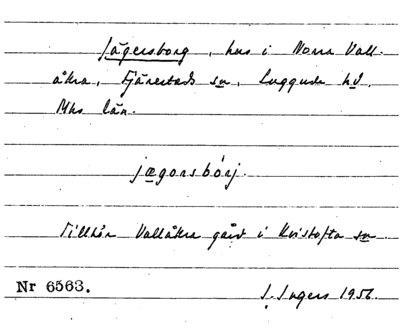 Jägersborg, hus i Norra Vall-
åkra, Fjärestads sn, Luggude hd.
Mhs län.
jægərsbórj.
Tillhör Vallåkra gård i Kvistofta sn
Nr 6563.
I. Ingers 1956.